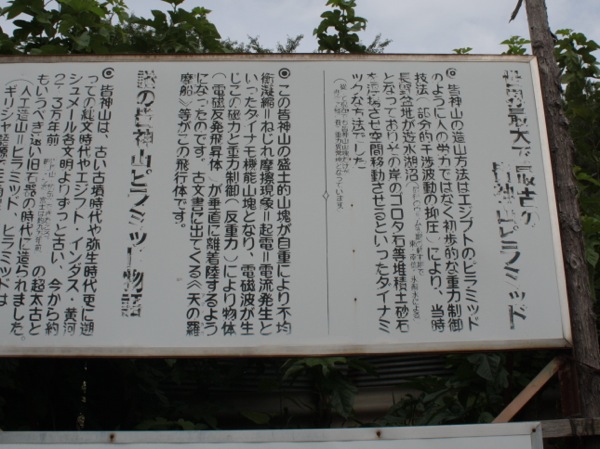 世界最大で最古の
皆神山ピラミッド
皆神山の造山方法はエジプトのピラミッド
のように人の労力ではなく初歩的な重力制御
技法(部分的干渉波動の抑圧)により、当時
長野盆地が遊水湖沼
となっておりその岸のゴロタ石等堆積土砂石
を浮揚させ空間移動させるといったダイナミ
ックな方法でした。
◎この皆神山の盛土的山塊が自重により不均
衡凝縮=ねじれ摩擦現象=起電=電流発生と
いったダイナモ機能山塊となり、電磁波が生
じこの磁力と重力制御(反重力)により物体
(電磁反発飛昇体)が垂直に離着陸するよう
になったのです。古文書に出てくる《天の羅
摩船》等がこの飛行体です。
謎の皆神山ピラミッド物語
◎皆神山は、古い古墳時代や弥生時代更に遡
っての縄文時代やエジプト・インダス・黄河
シュメール各文明よりずっと古い、今から約
2~3万年前
の超太古と
もいうべき遠い旧石器の時代に造られました。
(人工造山=ピラミッド、ピラミッドは
ギリシャ